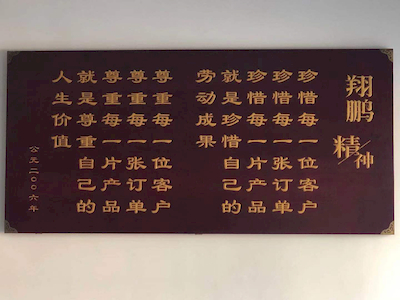 翔鹏
精神
珍惜每一位客户
珍惜每一张订单
珍惜每一片产品
就是珍惜自己的
劳动成果
尊重每一位客户
尊重每一张订单
尊重每一片产品
就是尊重自己的
人生价值
公元二〇〇六年